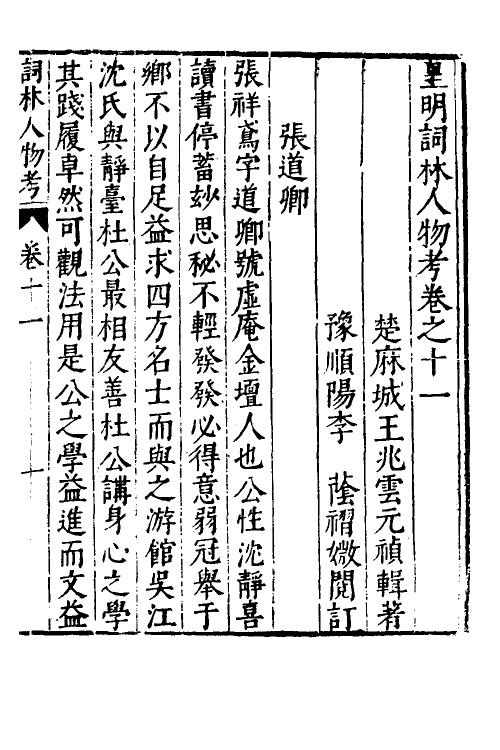 皇明詞林人物考卷之十一
楚麻城王兆雲元禎輯著
豫順陽李　蔭襵媺閱訂
張道卿
張祥鳶字道卿號虛庵金壇人也公性沈靜喜
讀書停蓄玅思秘不輕發發必得意弱冠舉于
鄉不以自足益求四方名士而與之游館吳江
沈氏與靜臺杜公最相友善杜公講身心之學
其踐履卓然可觀法用是公之學益進而文益
詞林人物考　卷十一　十